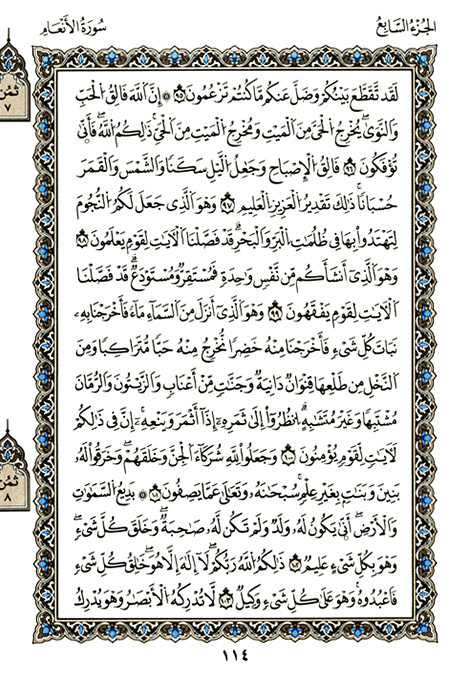 الجُزْءُ السَّابِعُ
سُورَةُ الأَنْعَامِ
ثُمُن
٧
لَقَد تَّقَطَّعَ بَيْنَكُمْ وَضَلَّ عَنكُم مَّا كُنتُمْ تَزْعُمُونَ ٩٥ ۞ إِنَّ اَللَّهَ فَالِقُ الْحَبِّ
وَالنَّوَىٰ يُخْرِجُ الْحَيَّ مِنَ الْمَيِّتِ وَمُخْرِجُ الْمَيِّتِ مِنَ الْحَيِّ ذَٰلِكُمُ اللَّهُ فَأَنَّىٰ
تُؤْفَكُونَ ٩٦ فَالِقُ الْإِصْبَاحِ وَجَعِلُ الَّيْلِ سَكَنًا وَالشَّمْسَ وَالْقَمَرَ
حُسْبَانًا ذَٰلِكَ تَقْدِيرُ الْعَزِيزِ الْعَلِيمِ ٩٧ وَهُوَ الَّذِي جَعَلَ لَكُمُ النُّجُومَ
لِتَهْتَدُوا بِهَا فِي ظُلُمَٰتِ الْبَرِّ وَالْبَحْرِ قَدْ فَصَّلْنَا الْأَيَٰتِ لِقَوْمٍ يَعْلَمُونَ ٩٨
وَهُوَ الَّذِي أَنشَأَكُم مِّن نَّفْسٍ وَٰحِدَةٍ فَمُسْتَقَرٌّ وَمُسْتَوْدَعٌ قَدْ فَصَّلْنَا
الْأَيَٰتِ لِقَوْمٍ يَفْقَهُونَ ٩٩ وَهُوَ الَّذِي أَنزَلَ مِنَ السَّمَاءِ مَاءً فَأَخْرَجْنَا بِهِ
نَبَاتَ كُلِّ شَيْءٍ فَأَخْرَجْنَا مِنْهُ خَضِرًا نُّخْرِجُ مِنْهُ حَبًّا مُّتَرَاكِبًا وَمِنَ
النَّخْلِ مِن طَلْعِهَا قِنْوَانٌ دَانِيَةٌ وَجَنَّٰتٍ مِّنْ أَعْنَابٍ وَالزَّيْتُونَ وَالرُّمَّانَ
مُشْتَبِهًا وَغَيْرَ مُتَشَٰبِهٍ انظُرُوا إِلَىٰ ثَمَرِهِ إِذَا أَثْمَرَ وَيَنْعِهِ إِنَّ فِي ذَٰلِكُمْ
لَأَيَٰتٍ لِّقَوْمٍ يُؤْمِنُونَ ١٠٠ وَجَعَلُوا لِلَّهِ شُرَكَاءَ الْجِنَّ وَخَلَقَهُمْ وَخَرَقُوا لَهُ
بَنِينَ وَبَنَٰتٍ بِغَيْرِ عِلْمٍ سُبْحَٰنَهُ وَتَعَٰلَىٰ عَمَّا يَصِفُونَ ١٠١ ۞ بَدِيعُ السَّمَٰوَٰتِ
وَالْأَرْضِ أَنَّىٰ يَكُونُ لَهُ وَلَدٌ وَلَمْ تَكُن لَّهُ صَٰحِبَةٌ وَخَلَقَ كُلَّ شَيْءٍ
وَهُوَ بِكُلِّ شَيْءٍ عَلِيمٌ ١٠٢ ذَٰلِكُمُ اللَّهُ رَبُّكُمْ لَا إِلَٰهَ إِلَّا هُوَ خَٰلِقُ كُلِّ شَيْءٍ
فَاعْبُدُوهُ وَهُوَ عَلَىٰ كُلِّ شَيْءٍ وَكِيلٌ ١٠٣ لَّا تُدْرِكُهُ الْأَبْصَٰرُ وَهُوَ يُدْرِكُ
ثُمُن
٨
١١٤